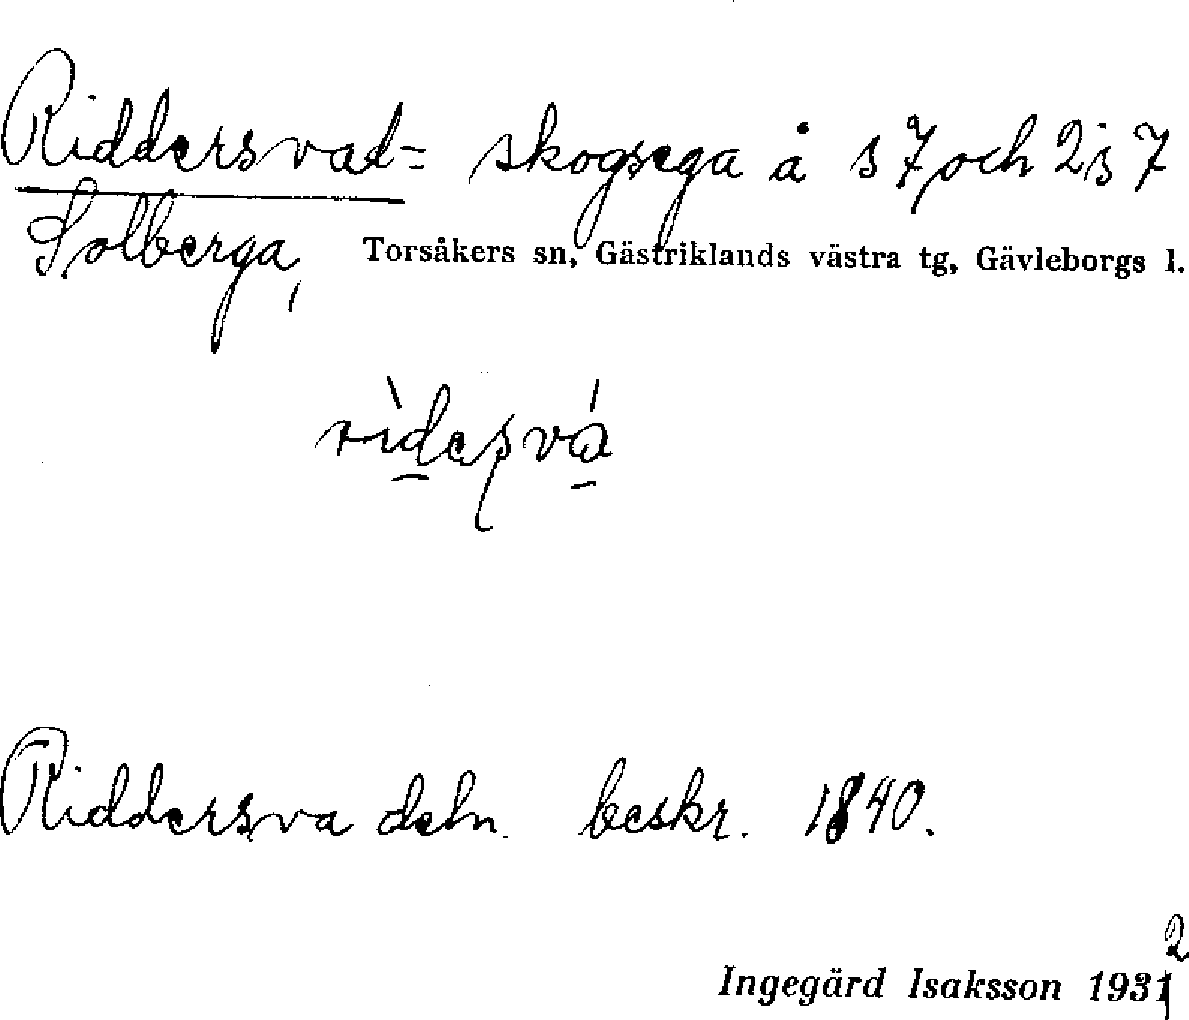 Riddersvad= skogsega å s 7 och 2 i s 7
Solberga, Torsåkers sn, Gästriklands västra tg, Gävleborgs l.
Riddersva deln. beskr. 1840.
2
Ingegärd Isaksson 1931